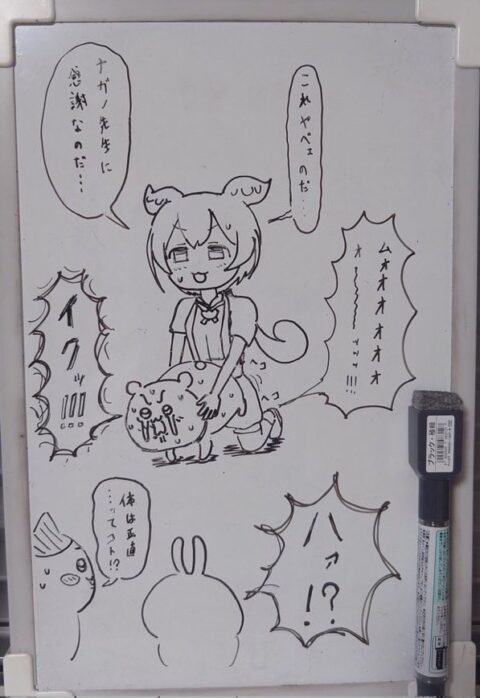 これヤベェのだ…
ナガノ先生に
感謝なのだ…
ムオオオオオオ
オ〜〜〜〜ァァァ!!!
イクッ!!!
ヘコ
ヘコ
ハァ!?
体は正直
……ってコト!?
ブラック・極細